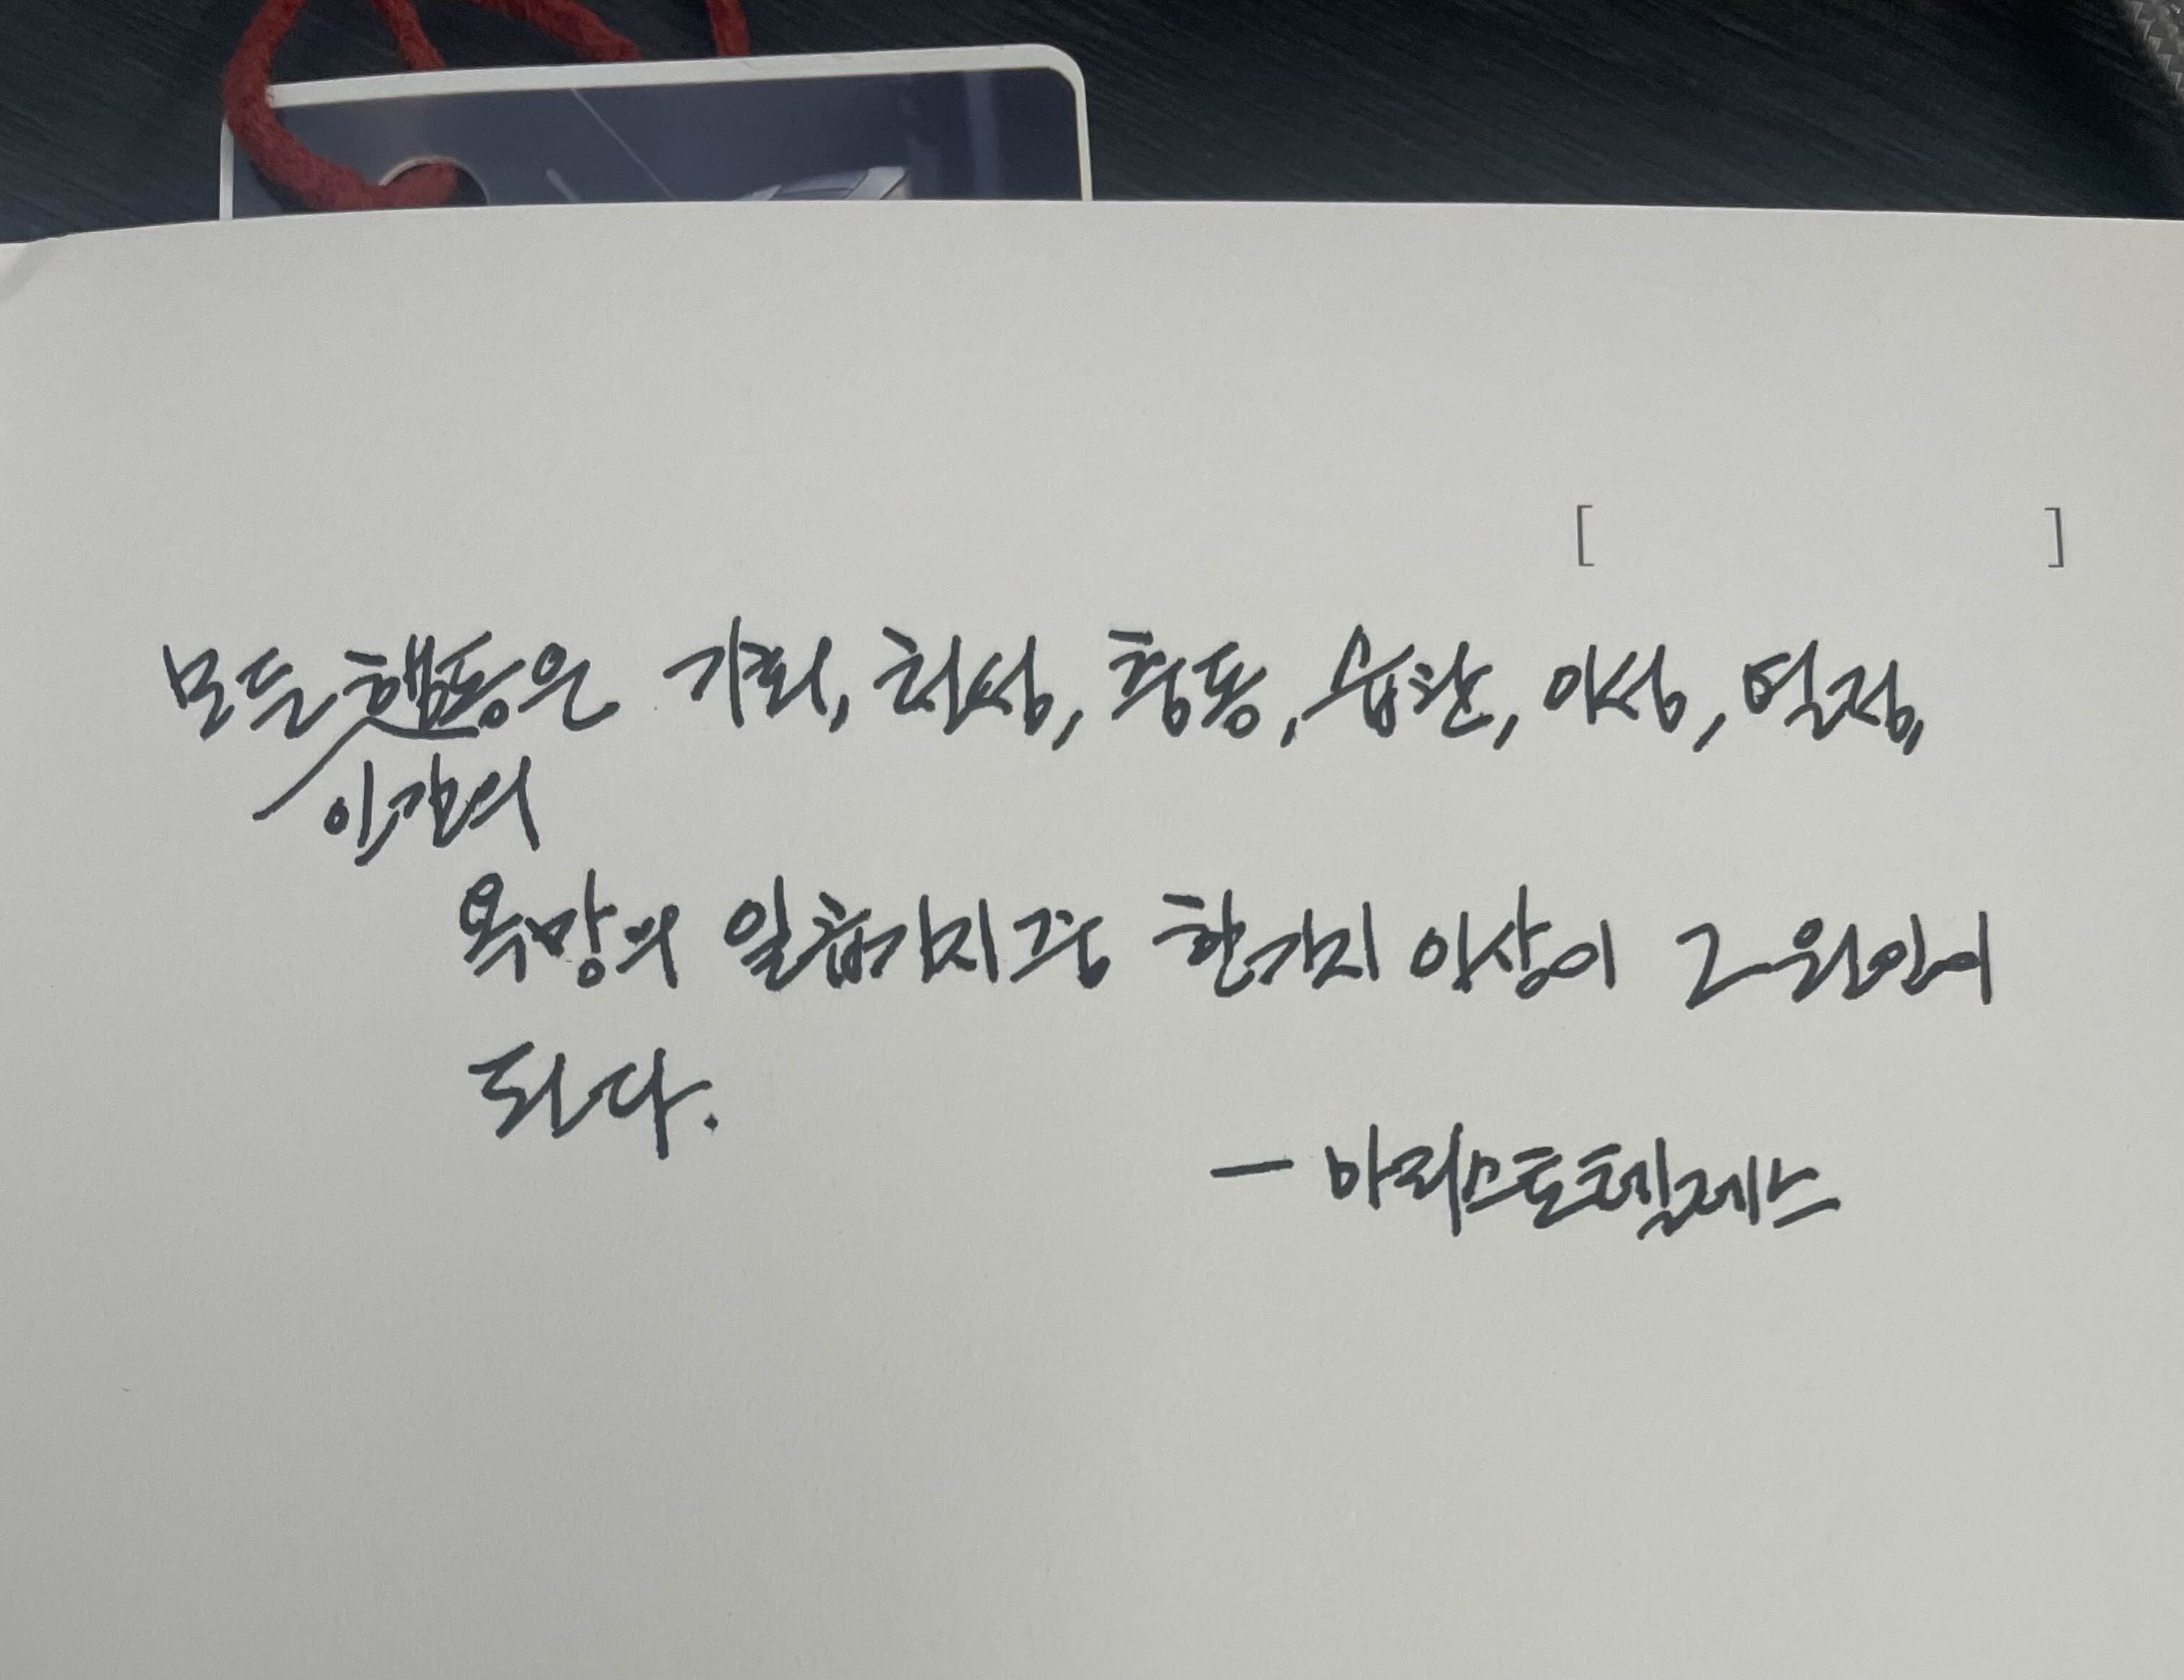 모든 행동은 기회, 천성, 충동, 습관, 이성, 열정,
인간의
욕망의 일곱가지 중 한가지 이상이 그 원인이
된다.
- 아리스토텔레스
[ ]